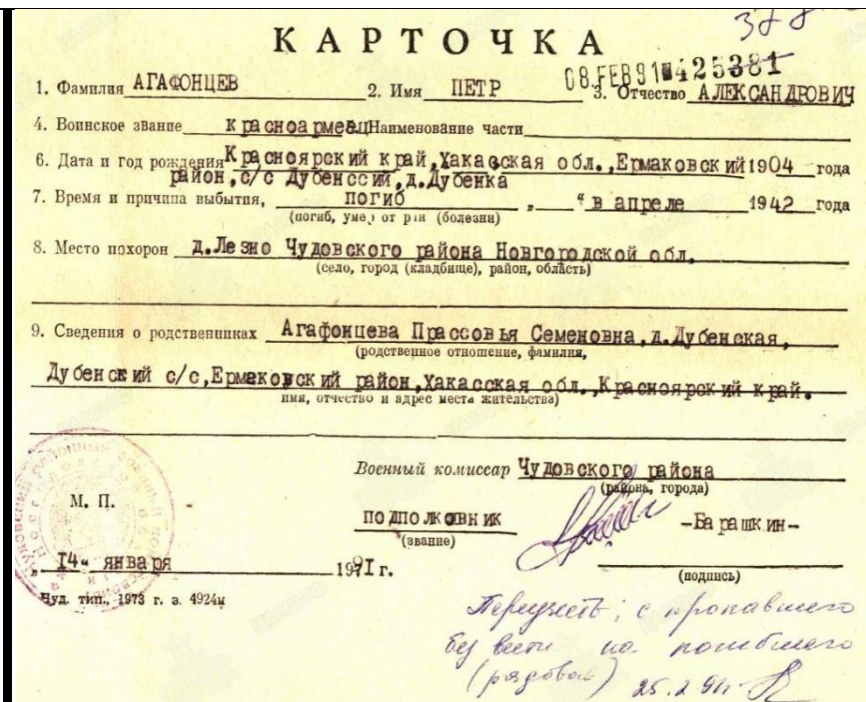 378
КАРТОЧКА
08.FEB91 425381
1. Фамилия АГАФОНЦЕВ 2. Имя ПЕТР 3. Отчество АЛЕКСАНДРОВИЧ
4. Воинское звание красноармеец Наименование части
6. Дата и год рождения Красноярский край,Хакасская обл.,Ермаковский 1904 года
район,с/с Дубенссий,д.Дубенка
7. Время и причина выбытия, погиб „ “ в апреле 1942 года
(погиб, умер от ран (болезни)
8. Место похорон д.Лезно Чудовского района Новгородской обл.
(село, город (кладбище), район, область)
9. Сведения о родственниках Агафонцева Прассовья Семеновна,д.Дубенская,
(родственное отношение, фамилия,
Дубенский с/с,Ермаковский район,Хакасская обл.,Красноярский край.
имя, отчество и адрес места жительства)
Военный комиссар Чудовского района
(района, города)
М. П.
подполковник -Барашкин-
(звание)
„ I4 “ января 1991 г.
(подпись)
Чуд. тип., 1973 г. з. 4924м
Переучесть; с пропавшего
без вести на погибшего
(рядовой) 25.2.91